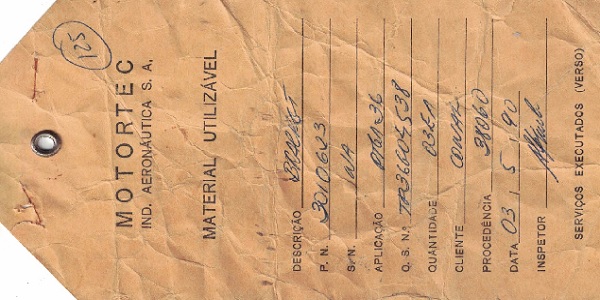 125
MOTORTEC
IND. AERONÁUTICA S. A.
MATERIAL UTILIZÁVEL
DESCRIÇÃO BRACKET
P. N. 3010643
S. N. N/A
APLICAÇÃO
O. S. N.º
QUANTIDADE 02EA
CLIENTE
PROCEDÊNCIA 38060
DATA 03, 5, 90
INSPETOR
SERVIÇOS EXECUTADOS (VERSO)